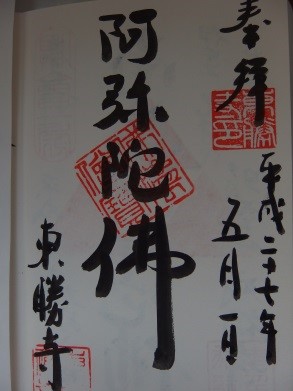 奉拝
平成二十七年
五月一日
阿弥陀佛
東勝寺